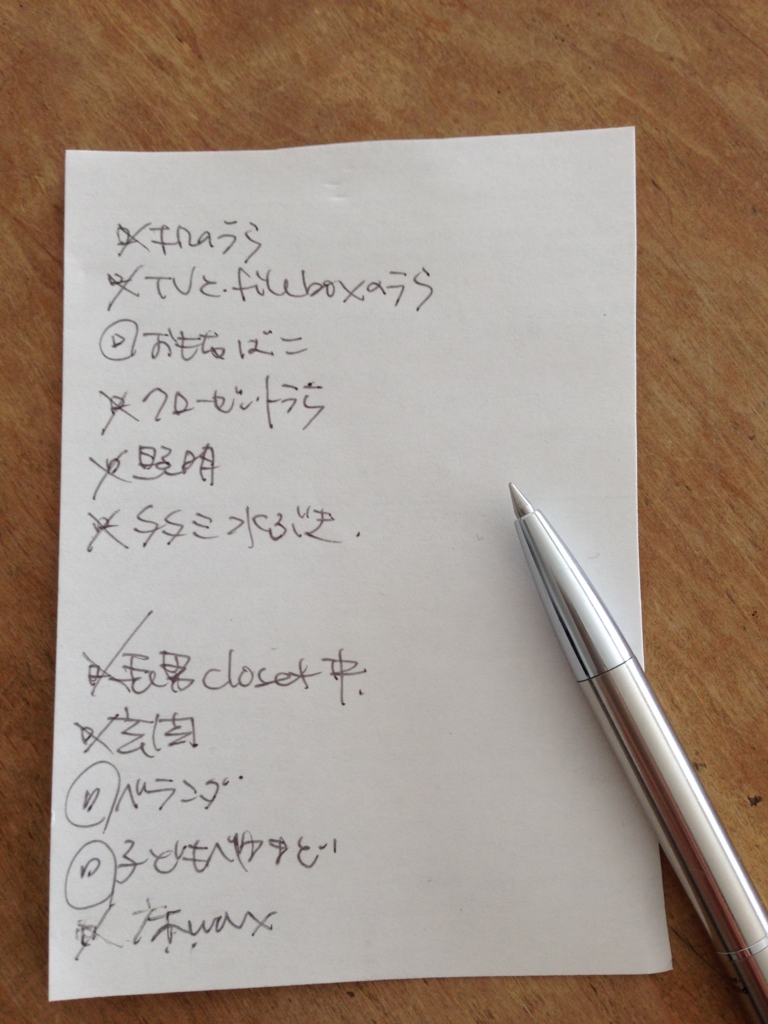 キnaうら
TVと.fileboxaうら
おもちゃばこ
クローゼットうら
照明
タタミ水ぶき.
closet中.
玄関
ベランダ
子どもべやまど
床wax